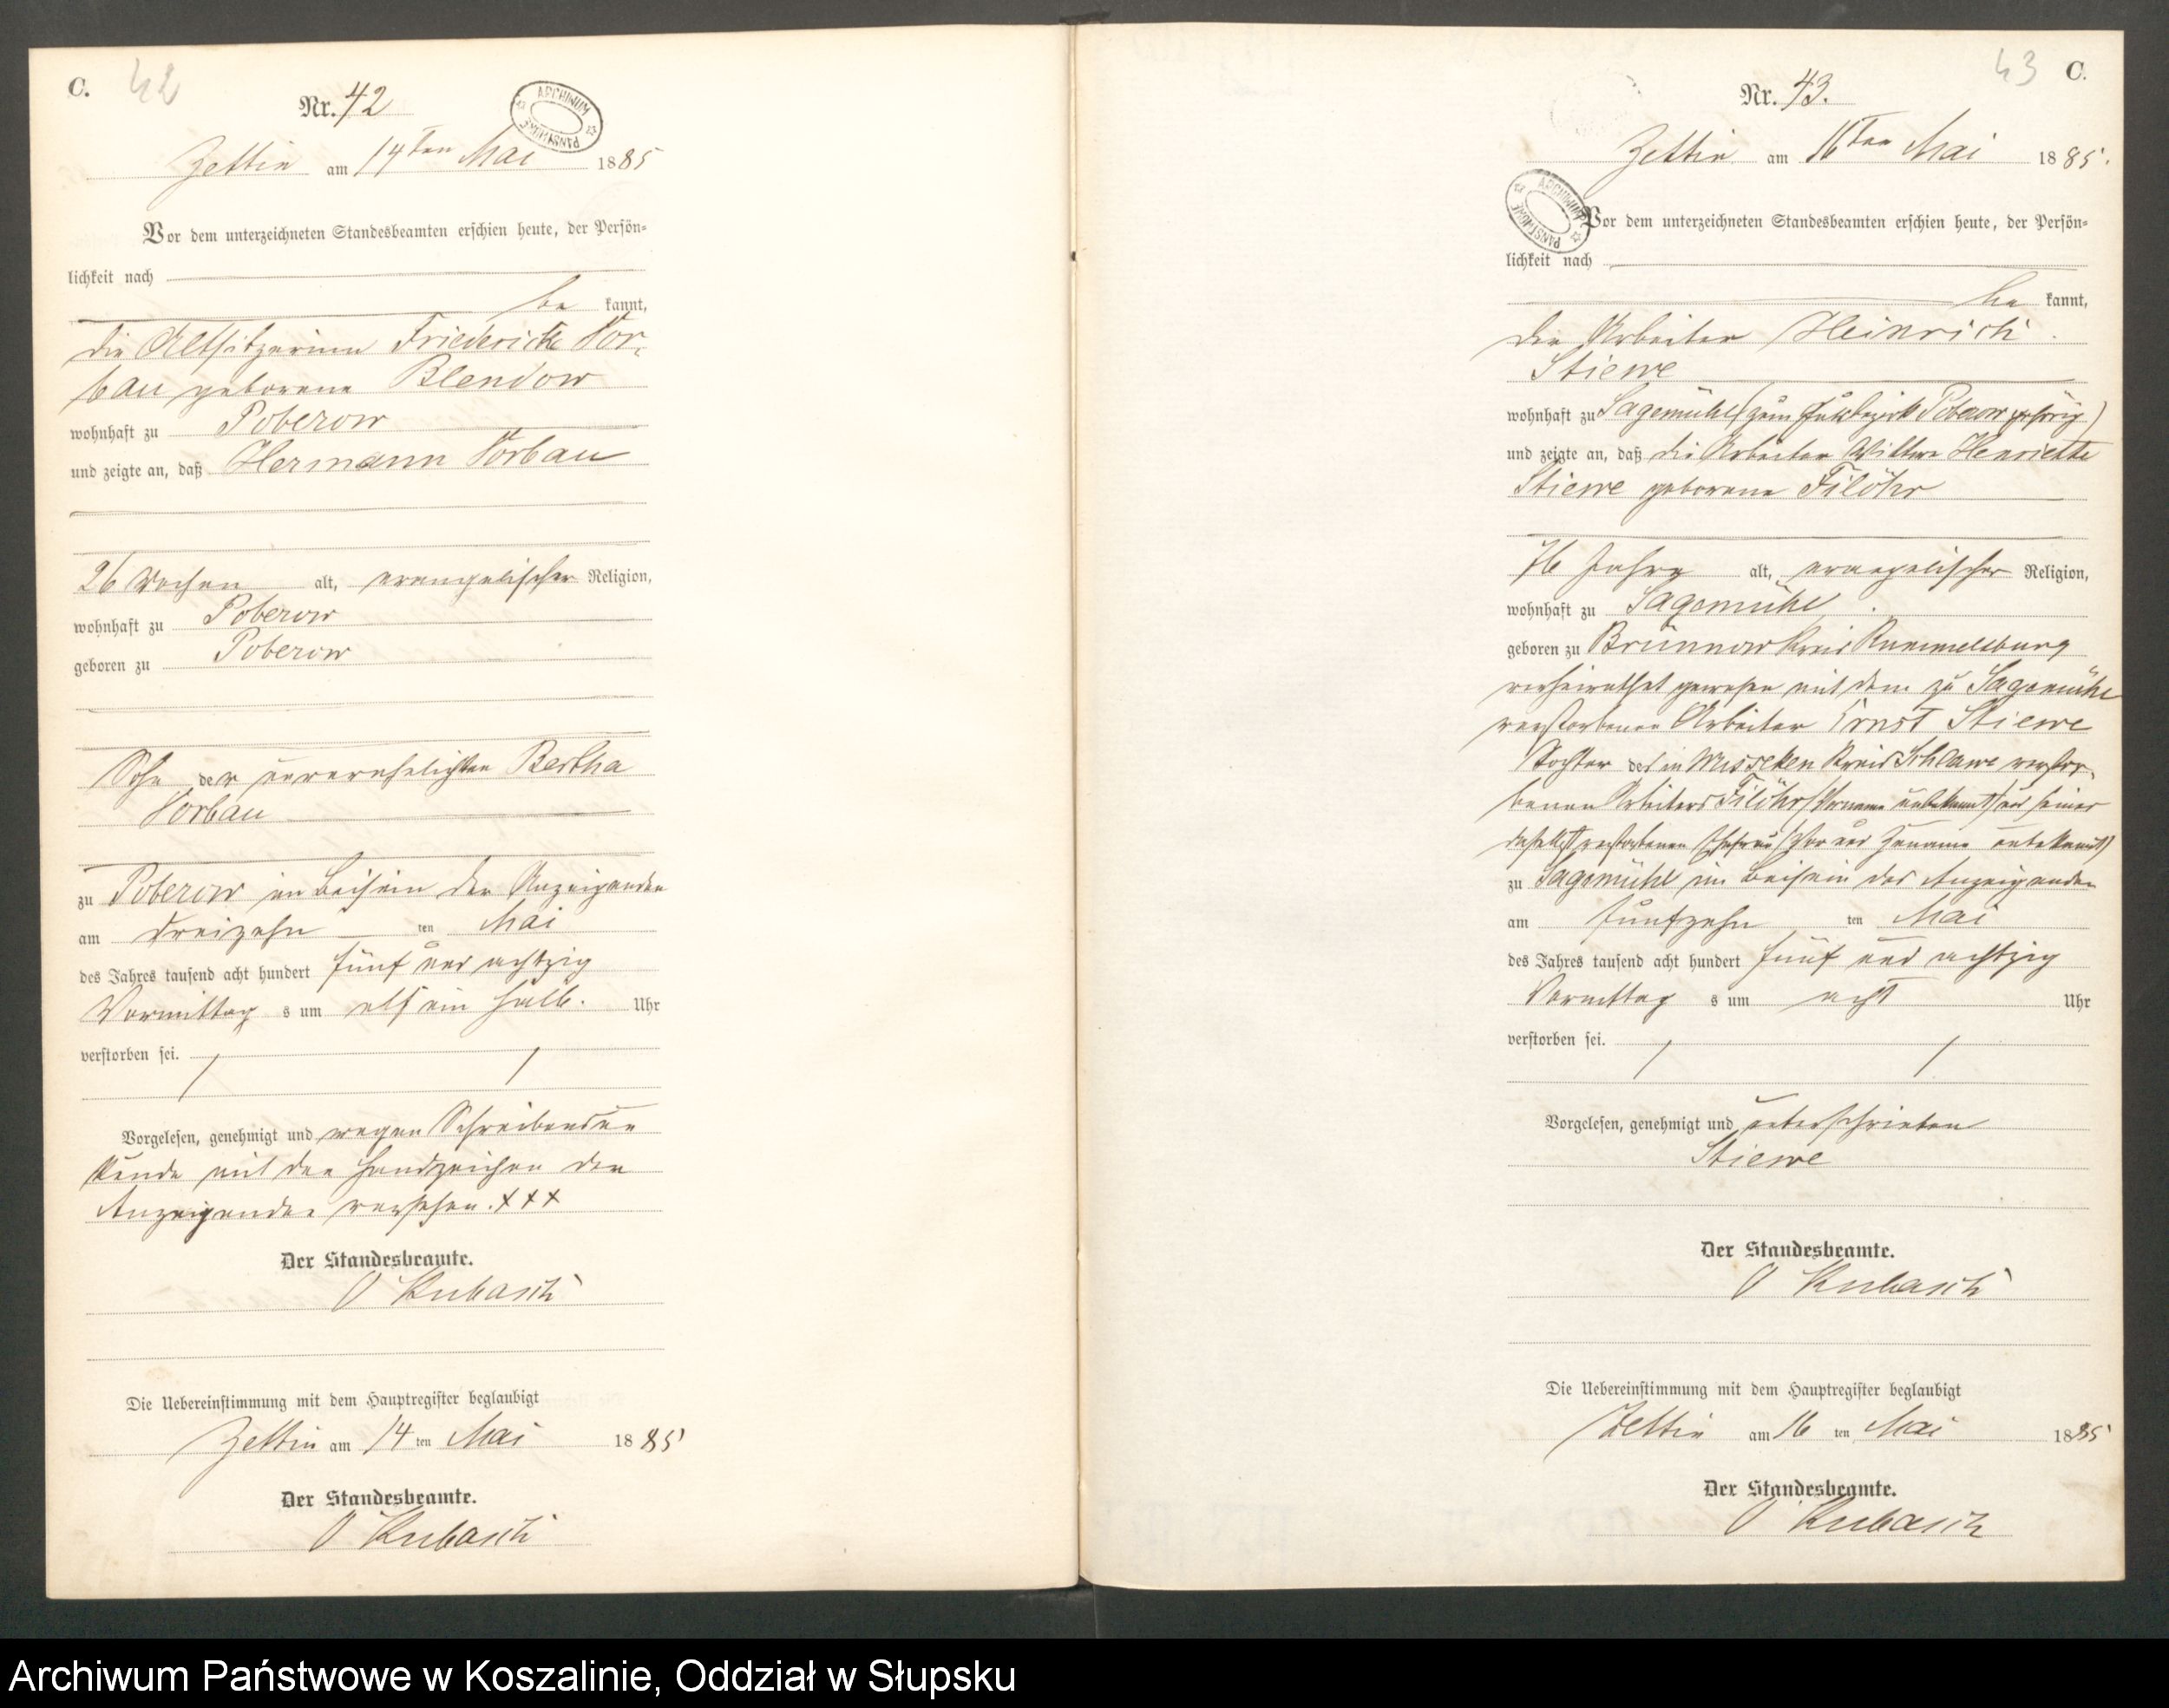 C. 42
Nr. 42
ARCHIWUM PAŃSTWOWE
Zettin am 14ten Mai 1885
Vor dem unterzeichneten Standesbeamten erschien heute, der Persön-
lichkeit nach
be kannt,
die Altsitzerinn Friedericke Vor-
bau geborene Blendow
wohnhaft zu Poberow
und zeigte an, daß Hermann Vorbau
26 Wochen alt, evangelischer Religion,
wohnhaft zu Poberow
geboren zu Poberow
Sohn der unverehelichten Bertha
Vorbau
zu Poberow im Beisein der Anzeigenden
am dreizehn ten Mai
des Jahres tausend acht hundert fünf und achtzig
Vormittag s um elf ein halb. Uhr
verstorben sei.
Vorgelesen, genehmigt und wegen Schreibensun
kunde mit den Handzeichen der
Anzeigenden versehen. + + +
Der Standesbeamte.
O Kubasch
Die Uebereinstimmung mit dem Hauptregister beglaubigt
Zettin am 14 ten Mai 1885
Der Standesbeamte.
O Kubasch
43 C.
Nr. 43.
Zettin am 16ten Mai 1885.
ARCHIWUM PAŃSTWOWE
Vor dem unterzeichneten Standesbeamten erschien heute, der Persön-
lichkeit nach
be kannt,
der Arbeiter Heinrich
Stiewe
wohnhaft zu Sagemühl (zum Gutsbezirk Poberow gehörig)
und zeigte an, daß die Arbeiter Wittwe Henriette
Stiewe geborene Filöhr
76 Jahre alt, evangelischer Religion,
wohnhaft zu Sagemühl
geboren zu Brünnow Kreis Rummelsburg
verheirathet gewesen mit dem zu Sagemühl
verstorbenen Arbeiter Ernst Stiewe
Tochter des in Wussecken Kreis Schlawe verstor-
benen Arbeiters Filöhr (Vorname unbekannt) und seiner
daselbst verstorbenen Ehefrau (Vor und Zuname unbekannt)
zu Sagemühl im Beisein des Anzeigenden
am fünfzehn ten Mai
des Jahres tausend acht hundert fünf und achtzig
Vormittag s um acht Uhr
verstorben sei.
Vorgelesen, genehmigt und unterschrieben
Stiewe
Der Standesbeamte.
O Kubasch
Die Uebereinstimmung mit dem Hauptregister beglaubigt
Zettin am 16 ten Mai 1885
Der Standesbeamte.
O Kubasch
Archiwum Państwowe w Koszalinie, Oddział w Słupsku